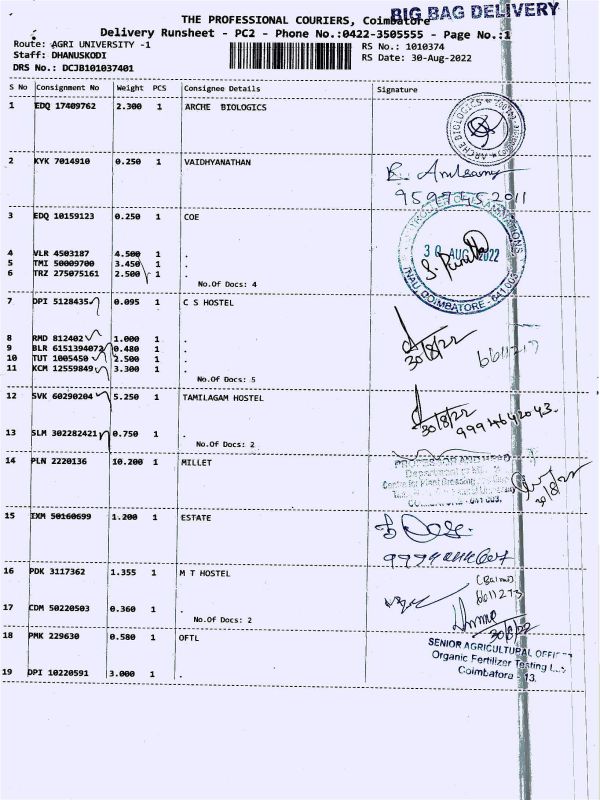 BIG BAG DELIVERY
THE PROFESSIONAL COURIERS, Coimbatore
Delivery Runsheet - PC2 - Phone No.:0422-3505555 - Page No.:1
Route: AGRI UNIVERSITY -1 RS No.: 1010374
Staff: DHANUSKODI RS Date: 30-Aug-2022
DRS No.: DCJB101037401
S No Consignment No Weight PCS Consignee Details Signature
1 EDQ 17409762 2.300 1 ARCHE BIOLOGICS
ARCHE BIOLOGICS
2 KYK 7014910 0.250 1 VAIDHYANATHAN
3 EDQ 10159123 0.250 1 COE
30 AUG 2022
TNAU, COIMBATORE - 641 003
4 VLR 4503187 4.500 1 .
5 TMI 50009700 3.450 1 .
6 TRZ 275075161 2.500 1 .
No.Of Docs: 4
7 DPI 5128435 0.095 1 C S HOSTEL
30/8/22
8 RMD 812402 1.000 1 .
9 BLR 6151394072 0.480 1 .
10 TUT 1005450 2.500 1 .
11 KCM 12559849 3.300 1 .
No.Of Docs: 5
12 SVK 60290204 5.250 1 TAMILAGAM HOSTEL
30/8/22
9994642043.
13 SLM 302282421 0.750 1 .
No.Of Docs: 2
14 PLN 2220136 10.200 1 MILLET
PROFESSOR AND HEAD
Department of
Centre for Plant Breeding
COIMBATORE - 641 003.
30/8/22
15 IXM 50160699 1.200 1 ESTATE
16 PDK 3117362 1.355 1 M T HOSTEL
6611273
17 CDM 50220503 0.360 1 .
No.Of Docs: 2
30/8/22
18 PMK 229630 0.580 1 OFTL
SENIOR AGRICULTURAL OFFICER
Organic Fertilizer Testing
Coimbatore - 13.
19 DPI 10220591 3.000 1 .